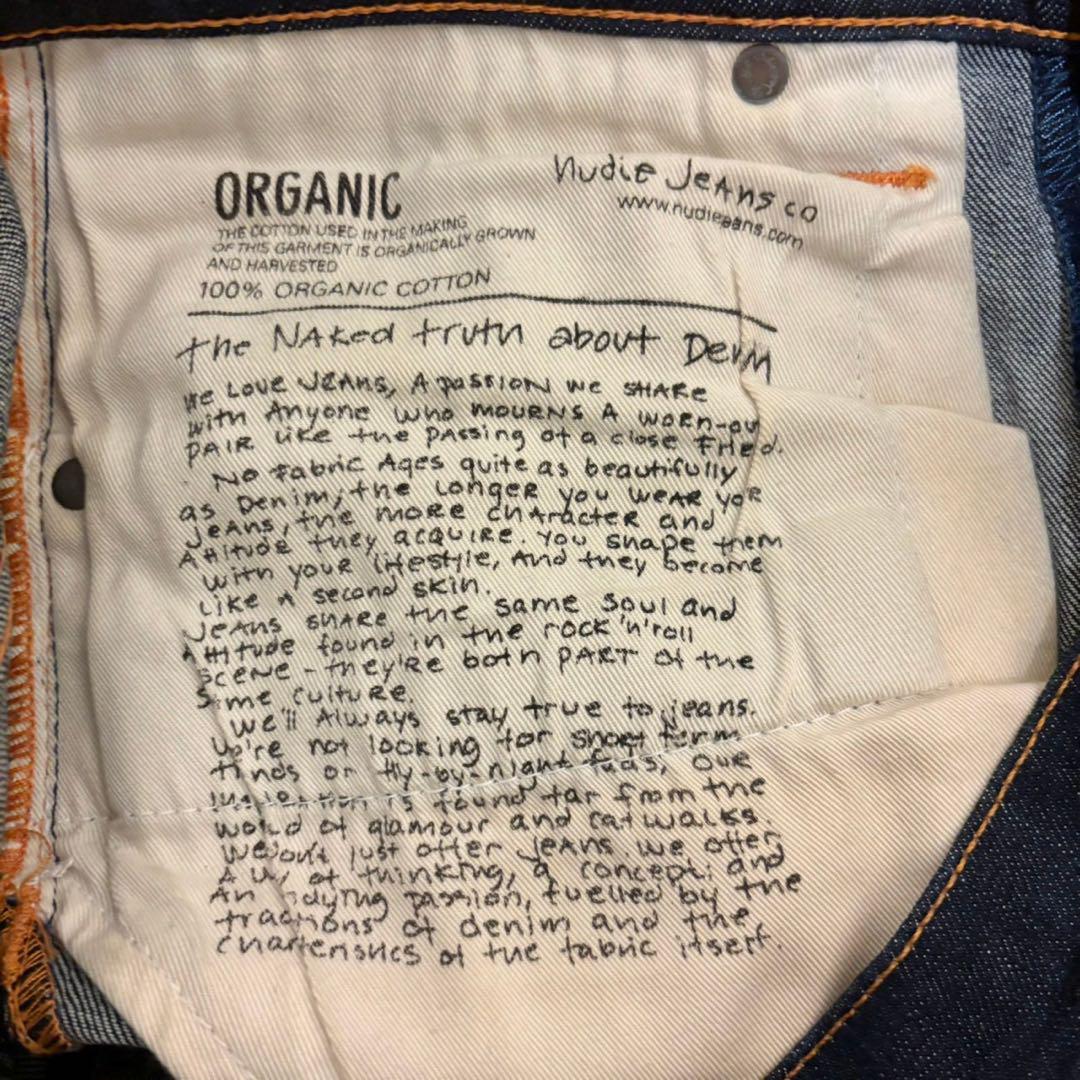 ORGANIC
THE COTTON USED IN THE MAKING
OF THIS GARMENT IS ORGANICALLY GROWN
AND HARVESTED
100% ORGANIC COTTON
Nudie Jeans co
www.nudiejeans.com
The Naked truth about Denim
We Love Jeans, A passion we share
with Anyone who mourns A worn-out
pair like the passing of a close fried.
No fabric Ages quite as beautifully
as Denim, the Longer you wear yor
Jeans, the more character and
Attitude they acquire. You shape them
with your lifestyle, And they become
Like A second skin.
Jeans share the same soul and
Attitude found in the rock'n'roll
scene - they're both part of the
same culture.
We'll Always stay true to jeans.
We're not looking for short term
or fly-by-night fads, our
is found far from the
world of glamour and catwalks.
just offer jeans. we offer
A way of thinking, a concept and
An passion, fuelled by the
of denim and the
of the fabric itself.